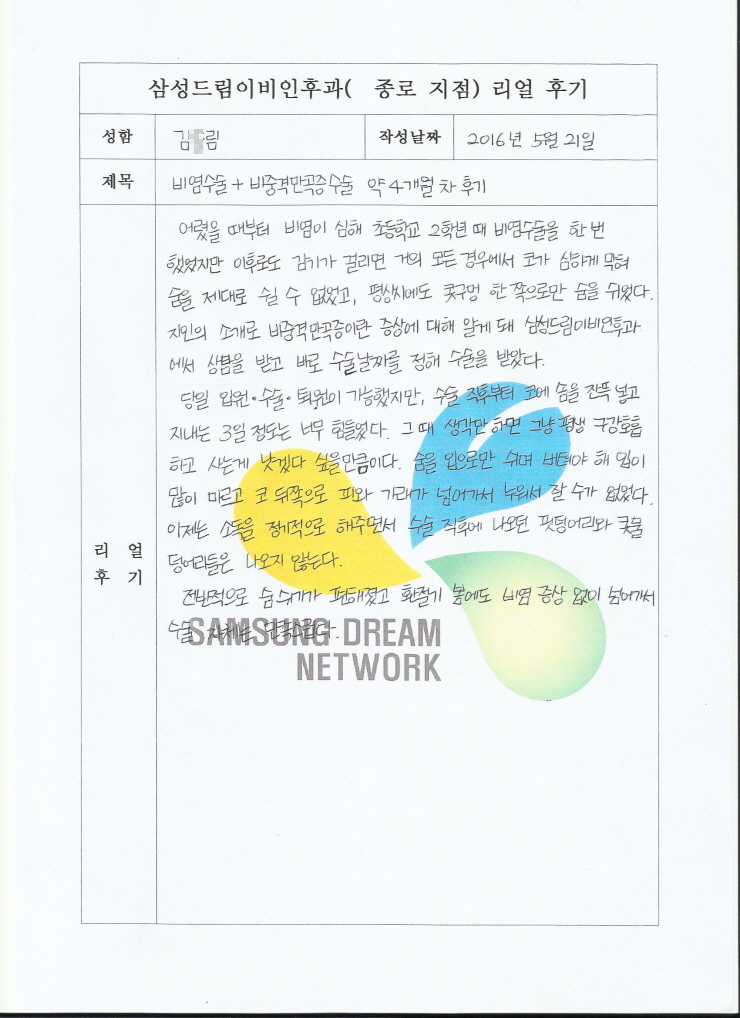 삼성드림이비인후과( 종로 지점) 리얼 후기
성함 김 림 작성날짜 2016년 5월 21일
제목 비염수술 + 비중격만곡증수술 약 4개월 차 후기
어렸을 때부터 비염이 심해 초등학교 2학년 때 비염수술을 한 번
했었지만 이후로도 감기가 걸리면 거의 모든 경우에서 코가 심하게 막혀
숨을 제대로 쉴 수 없었고, 평상시에도 콧구멍 한 쪽으로만 숨을 쉬었다.
지인의 소개로 비중격만곡증이란 증상에 대해 알게 돼 삼성드림이비인후과
에서 상담을 받고 바로 수술날짜를 정해 수술을 받았다.
당일 입원·수술·퇴원이 가능했지만, 수술 직후부터 코에 솜을 잔뜩 넣고
지내는 3일 정도는 너무 힘들었다. 그 때 생각만 하면 그냥 평생 구강호흡
하고 사는게 낫겠다 싶을만큼이다. 숨을 입으로만 쉬며 버텨야 해 입이
많이 마르고 코 뒤쪽으로 피와 가래가 넘어가서 누워서 잘 수가 없었다.
이제는 소독을 정기적으로 해주면서 수술 직후에 나오던 핏덩어리와 콧물
덩어리들은 나오지 않는다.
리 얼
후 기
전반적으로 숨 쉬기가 편해졌고 환절기 봄에도 비염 증상 없이 넘어가서
수술 자체는 만족스럽다.
SAMSUNG DREAM
NETWORK